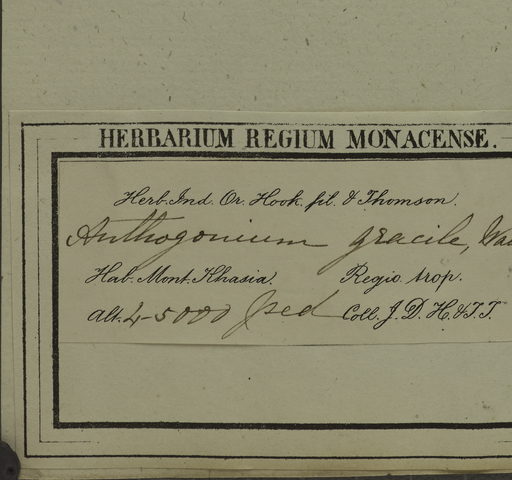 HERBARIUM REGIUM MONACENSE.
Herb. Ind. Or. Hook. fil. & Thomson.
Anthogonium gracile,
Hab. Mont. Khasia. Regio trop.
Alt. 4-5000 ped Coll. J. D. H. & T. T.